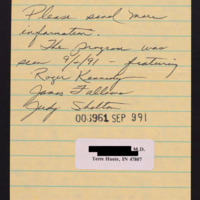 Please send more
information.
The program was
seen 9/2/91 - featuring
Roger Kennedy
James Fallows
Judy Shelton
003961 SEP 991
M.D.
Terre Haute, IN 47807